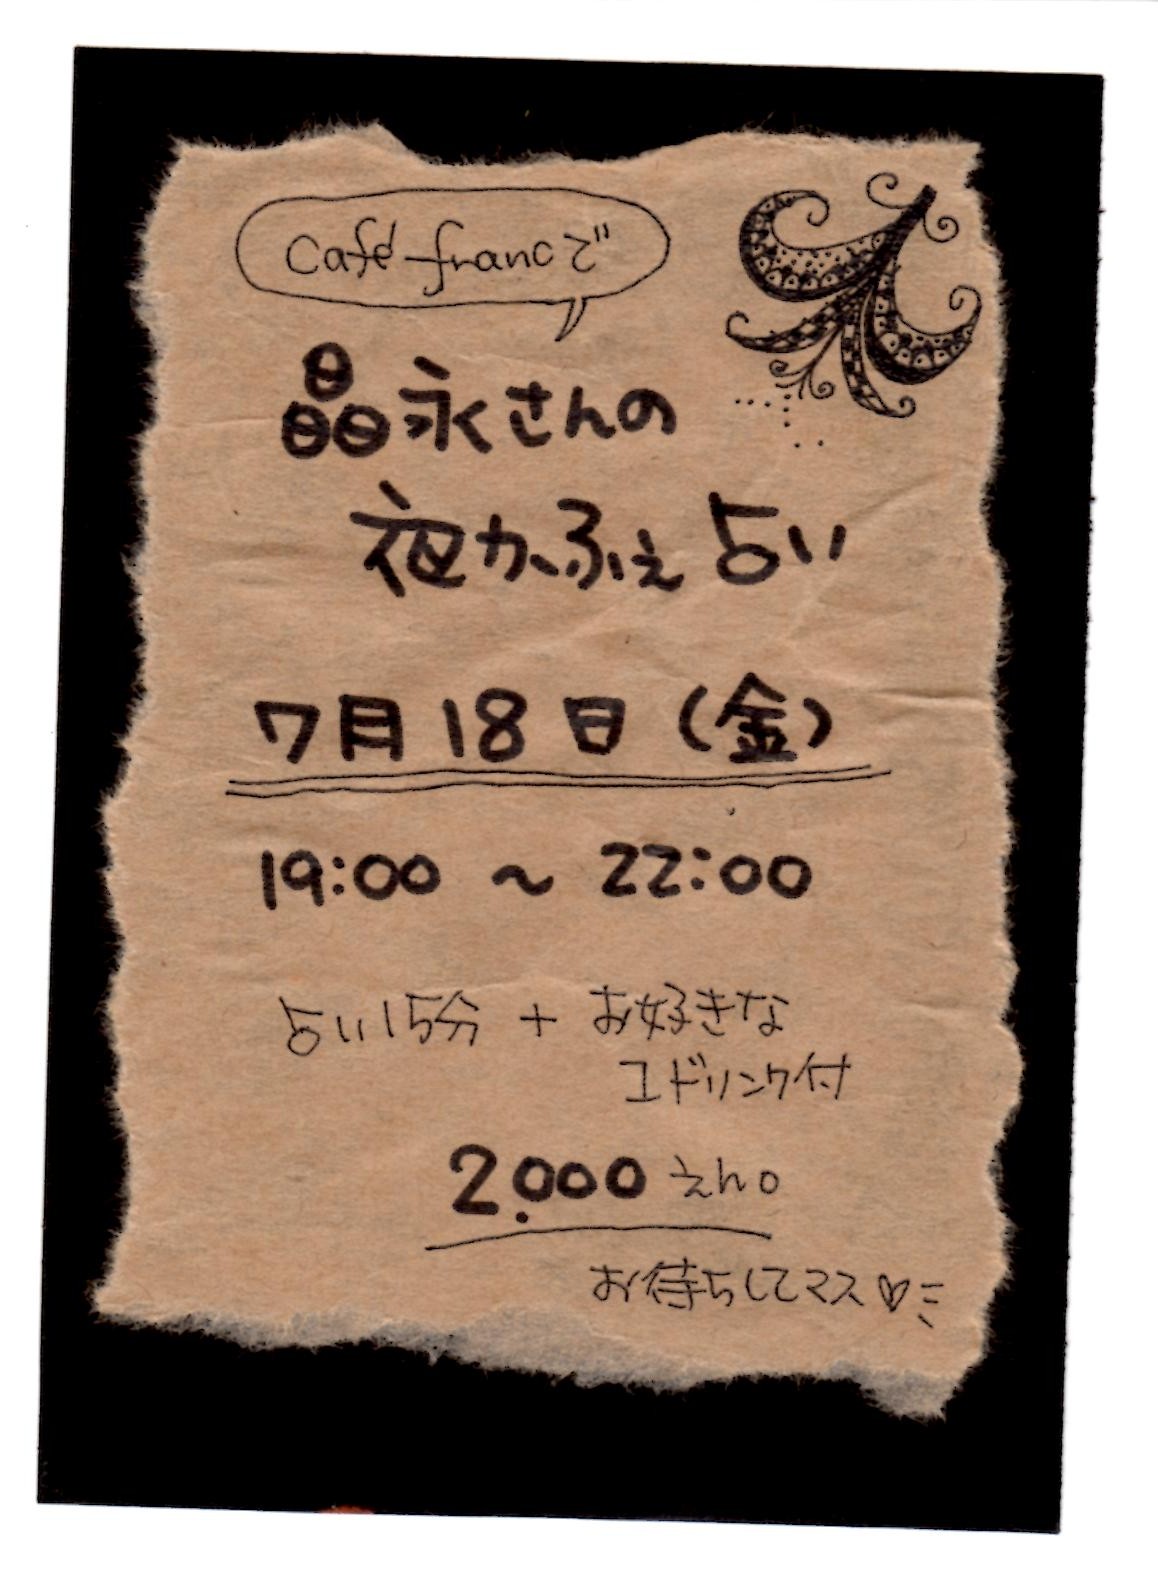 café francで
晶永さんの
夜かふぇ占い
7月18日(金)
19:00 ~ 22:00
占い15分 + お好きな
1ドリンク付
2.000えん。
お待ちしてマス♡